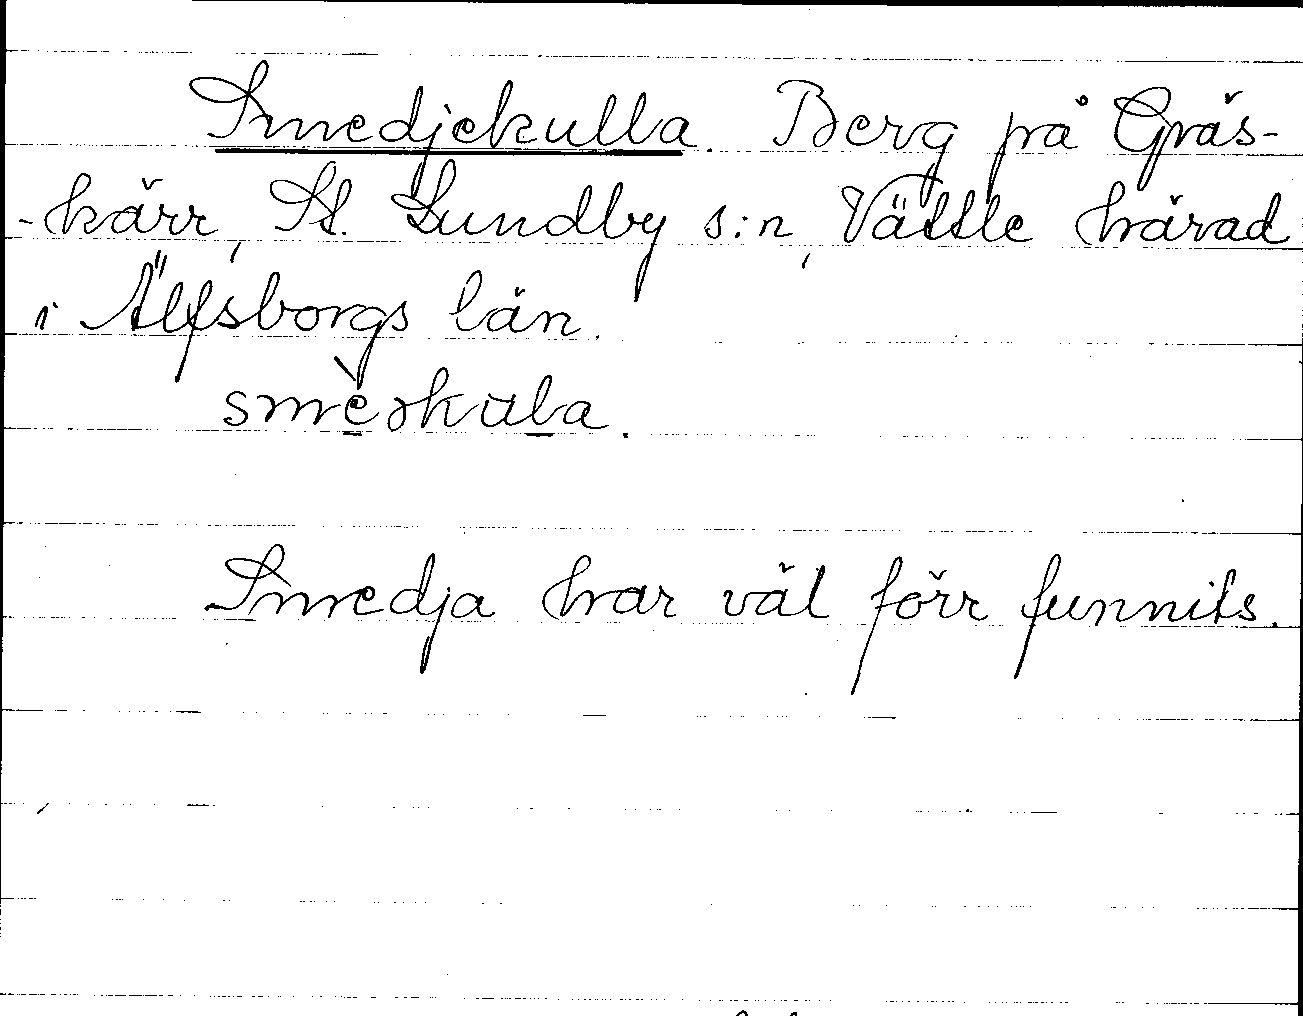 Smedjekulla. Berg på Gräs-
-kärr, St. Lundby s:n, Vättle härad
i Älfsborgs län.
smèrkula.
Smedja har väl förr funnits.